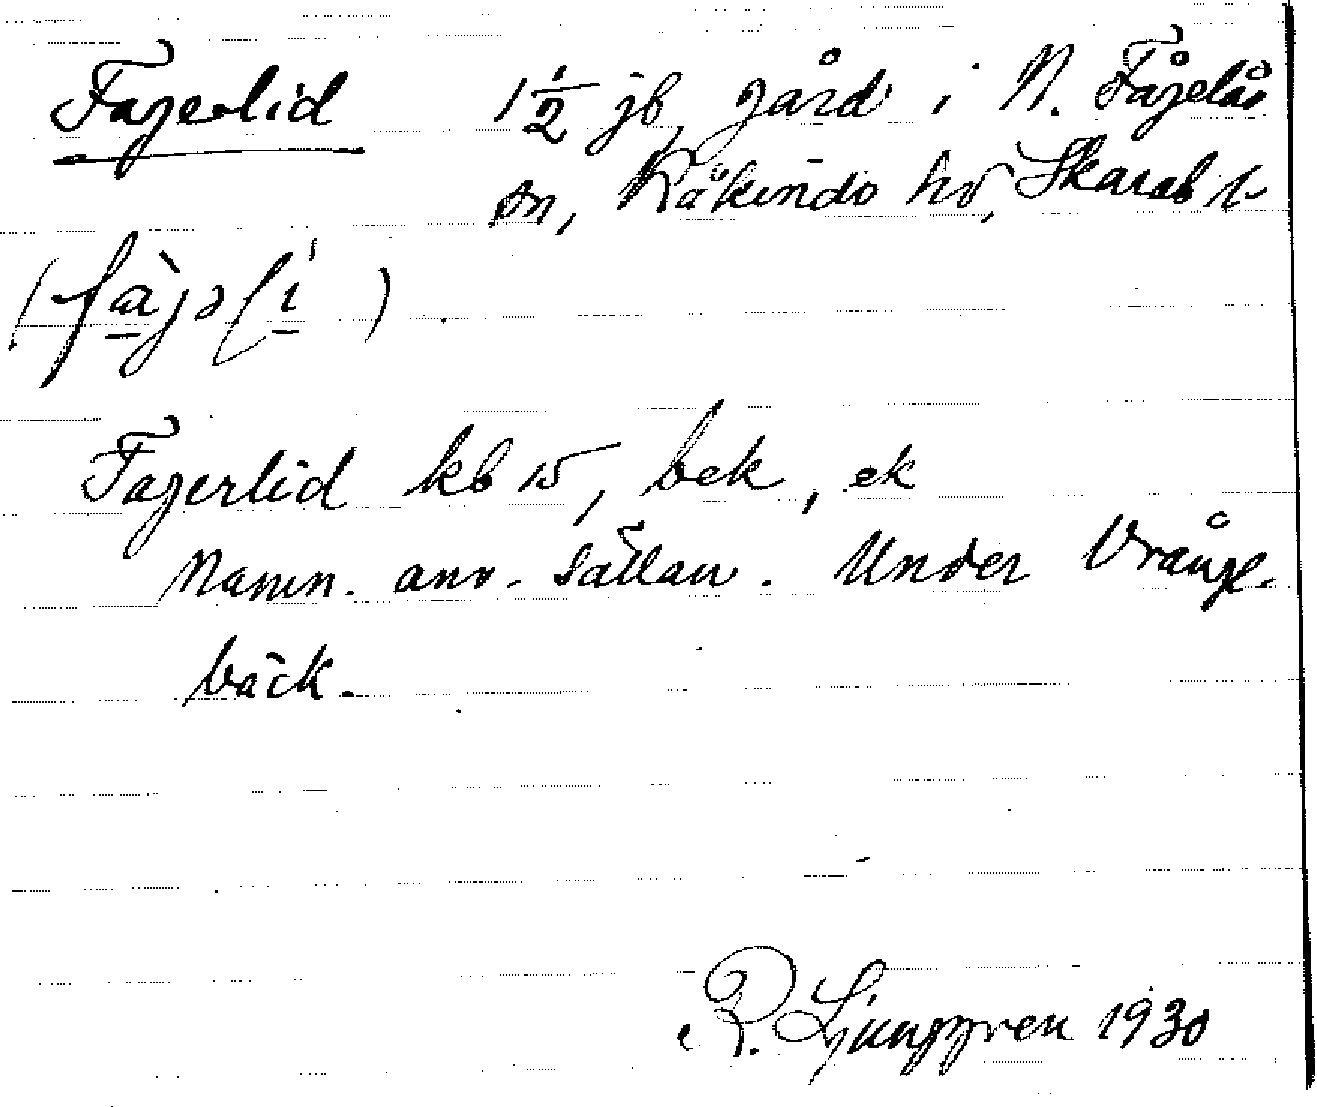 Fagerlid 1 1/2 jb, gård i N. Fågelås
sn, Kåkinds hd, Skarab l.
Fagerlid kb 15, bek, ek
Namn. anv. sällan. Under Vrånge-
bäck.
R. Ljunggren 1930